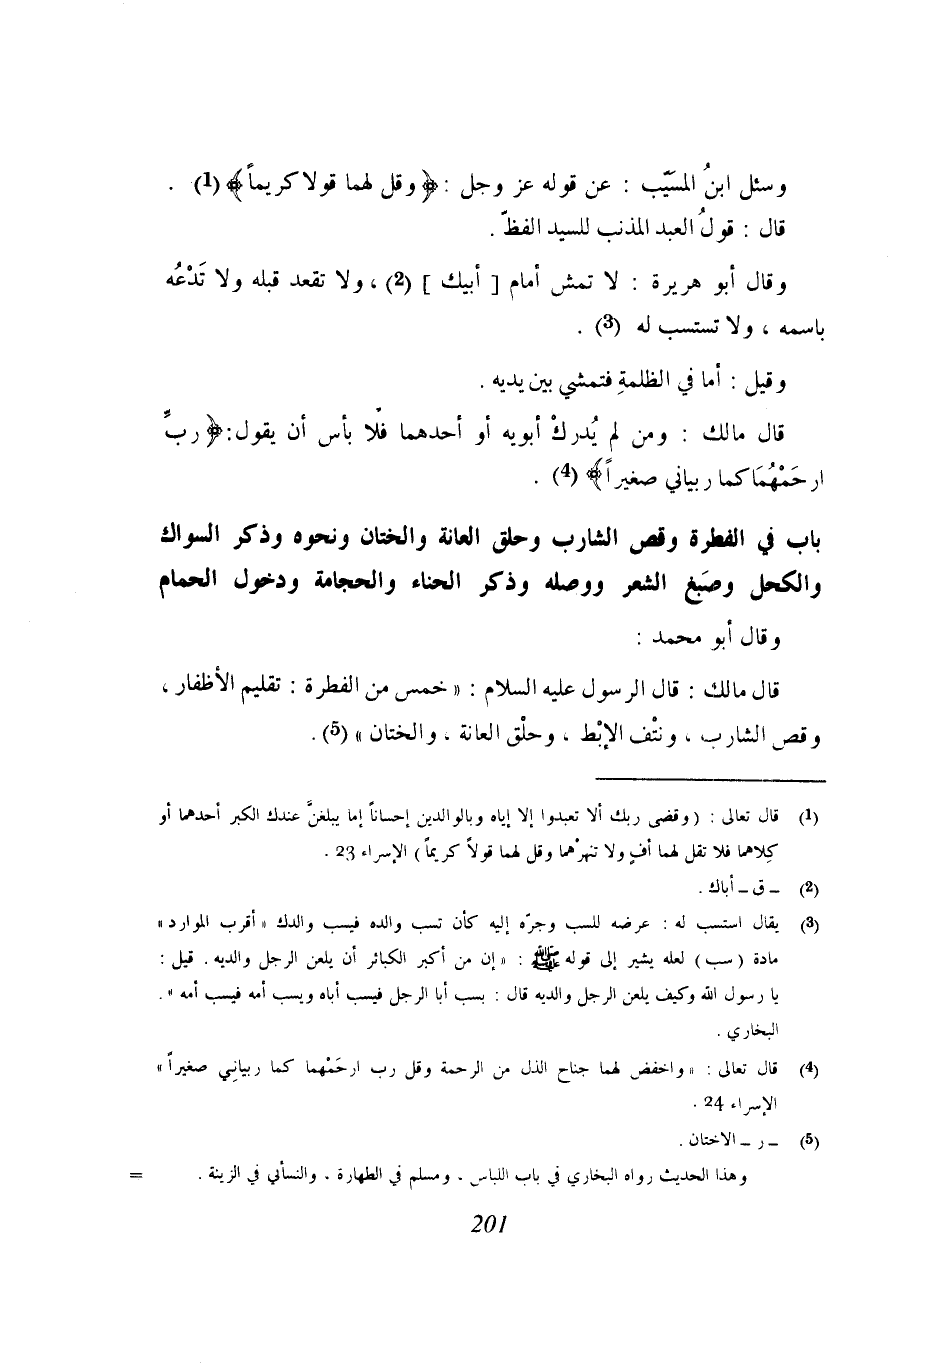 وسئل ابنُ المسَيَّب : عن قوله عز وجل : ﴿ وقل لهما قولا كريماً ﴾ (1) .
قال : قولُ العبد المذنب للسيد الفظّ .
وقال أبو هريرة : لا تمش أمام [ أبيك ] (2) ، ولا تقعد قبله ولا تَدْعُه
باسمه ، ولا تستسب له (3) .
وقيل : أما في الظلمةِ فتمشي بين يديه .
قال مالك : ومن لم يُدركْ أبويه أو أحدهما فلا بأس أن يقول : ﴿ ربِّ
ارحَمْهُمَا كما ربياني صغيراً ﴾ (4) .
باب في الفطرة وقص الشارب وحلق العانة والختان ونحوه وذكر السواك
والكحل وصَبغ الشعر ووصله وذكر الحناء والحجامة ودخول الحمام
وقال أبو محمد :
قال مالك : قال الرسول عليه السلام : « خمس من الفطرة : تقليم الأظفار ،
وقص الشارب ، ونتْف الإبْط ، وحلْق العانة ، والختان » (5) .
(1) قال تعالى : ( وقضى ربك ألا تعبدوا إلا إياه وبالوالدين إحساناً إما يبلغنَّ عندك الكبر أحدهما أو
كِلاهما فلا تقل لهما أفٍ ولا تنهرْهما وقل لهما قولاً كريماً ) الإسراء 23 .
(2) ـ ق ـ أباك .
(3) يقال استسب له : عرضه للسب وجرّه إليه كأن تسب والده فيسب والدك « أقرب الموارد »
مادة ( سب ) لعله يشير إلى قوله ﷺ : « إن من أكبر الكبائر أن يلعن الرجل والديه . قيل :
يا رسول الله وكيف يلعن الرجل والديه قال : يسب أبا الرجل فيسب أباه ويسب أمه فيسب أمه » .
البخاري .
(4) قال تعالى : « واخفض لهما جناح الذل من الرحمة وقل رب ارحَمْهما كما ربياني صغيراً »
الإسراء 24 .
(5) ـ ر ـ الاختان .
وهذا الحديث رواه البخاري في باب اللباس . ومسلم في الطهارة . والنسأئي في الزينة . =
201